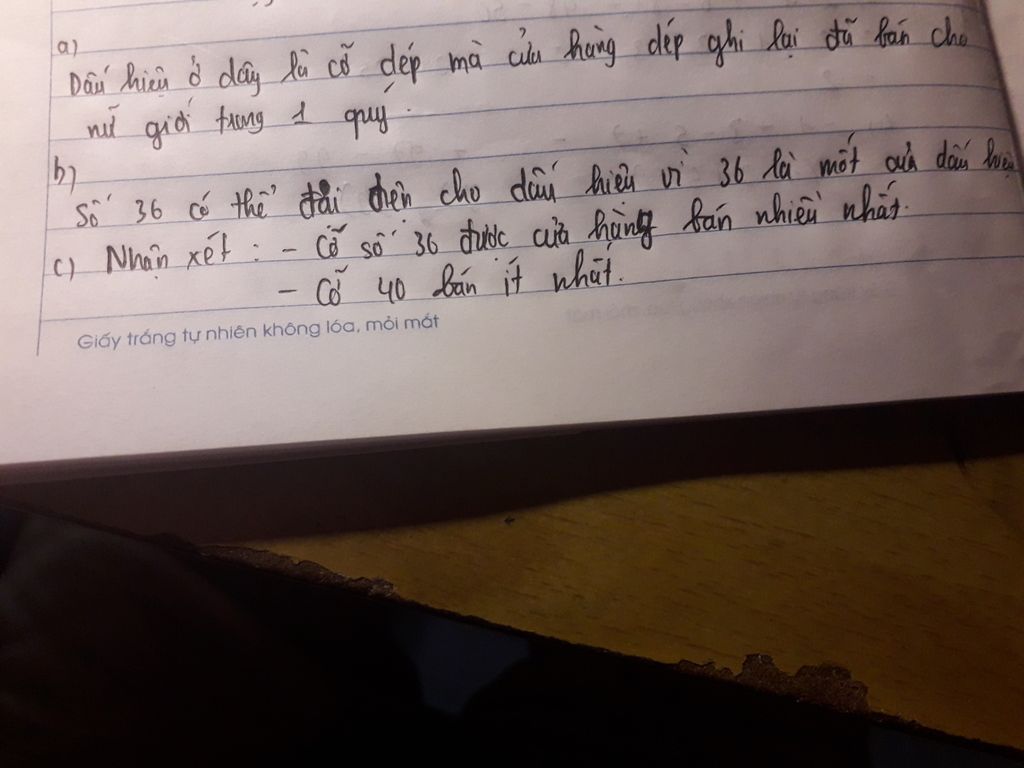 a)
Dấu hiệu ở dây là cỡ dép mà cửa hàng dép ghi lại đã bán cho
nữ giới trong 1 quý.
b)
Số 36 có thể đại diện cho dấu hiệu vì 36 là mốt của dấu hiệu
c) Nhận xét : - Cỡ số 36 được cửa hàng bán nhiều nhất.
- Cỡ 40 bán ít nhất.
Giấy trắng tự nhiên không lóa, mỏi mắt